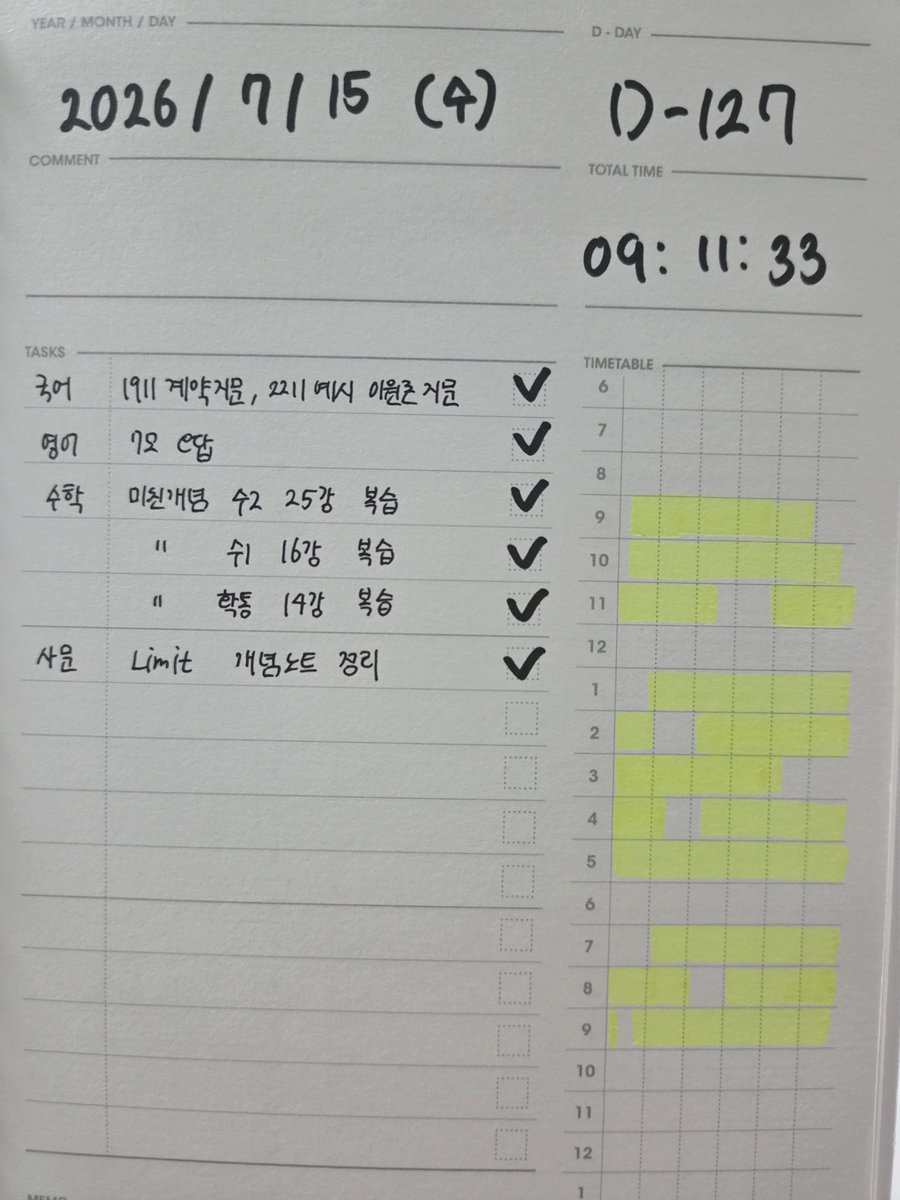 YEAR / MONTH / DAY
2026 / 7 / 15 (수)
D - DAY
D-127
COMMENT
TOTAL TIME
09: 11: 33
TASKS
국어 1911 계약지문, 2211 예시 아원촌 지문
영어 7모 e답
수학 미친개념 수2 25강 복습
" 수1 16강 복습
" 확통 14강 복습
사문 Limit 개념노트 정리
TIMETABLE
6
7
8
9
10
11
12
1
2
3
4
5
6
7
8
9
10
11
12
1
MEMO